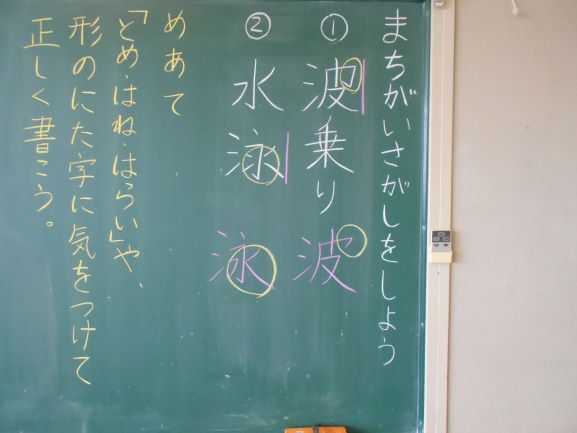 まちがいさがしをしよう
① 波乗り 波
② 水泳 泳
めあて
「とめ・はね・はらい」や、
形のにた字に気をつけて
正しく書こう。